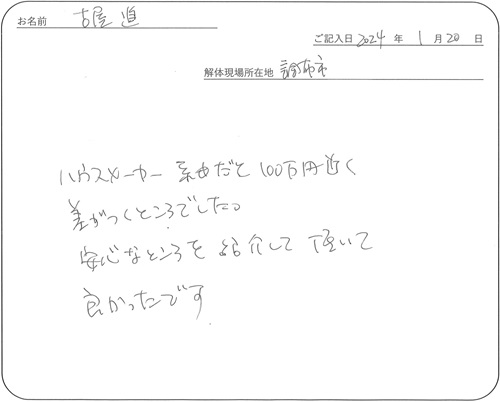 お名前 古屋 道
ご記入日 2024 年 1 月 20 日
解体現場所在地 調布市
ハウスメーカー 系由だと 100万円近く
差がつくところでした。
安心なところを 紹介して 頂いて
良かったです